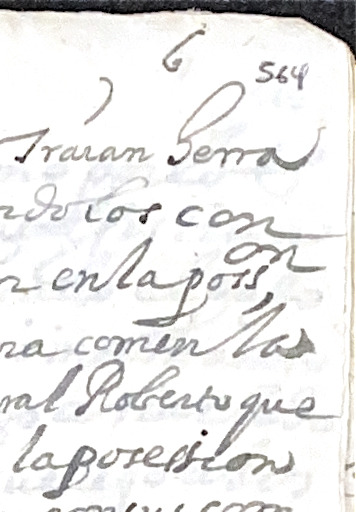 6
564
traian Serra
ndolos con
n en la poss.on
na comen la
ral Roberto que
la possession